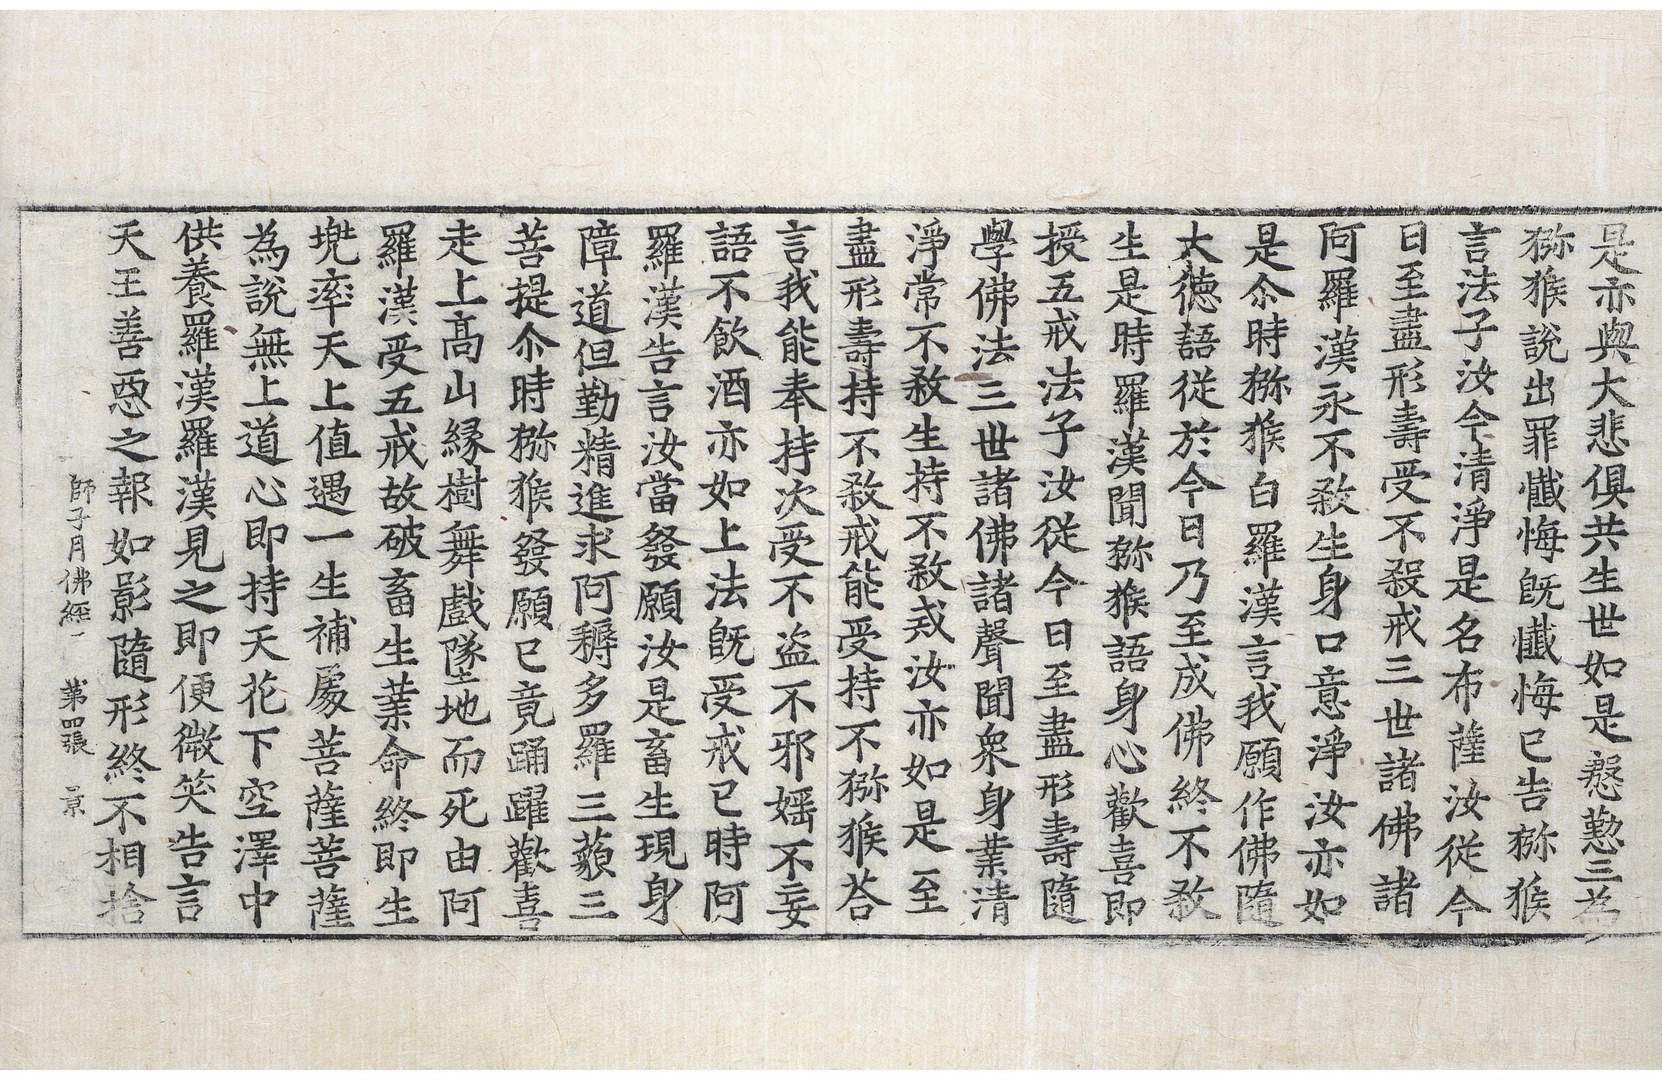 是亦與大悲俱共生世如是慇懃三為
獼猴說出罪懺悔旣懺悔已告獼猴
言法子汝今清淨是名布薩汝從今
日至盡形壽受不殺戒三世諸佛諸
阿羅漢永不敎生身口意淨汝亦如
是尒時獼猴白羅漢言我願作佛隨
大德語從於今日乃至成佛終不敎
生是時羅漢聞獼猴語身心歡喜即
授五戒法子汝從今日至盡形壽隨
學佛法三世諸佛諸聲聞衆身業清
淨常不敎生持不敎戒汝亦如是至
盡形壽持不敎戒能受持不獼猴荅
言我能奉持次受不盜不邪婬不妄
語不飲酒亦如上法旣受戒已時阿
羅漢告言汝當發願汝是畜生現身
障道但勤精進求阿耨多羅三藐三
菩提尒時獼猴發願已竟踊躍歡喜
走上高山緣樹舞戲墜地而死由阿
羅漢受五戒故破畜生業命終即生
兠率天上值遇一生補處菩薩菩薩
為說無上道心即持天花下空澤中
供養羅漢羅漢見之即便微笑告言
天王善惡之報如影隨形終不相捨
師子月佛經一 第四張 景